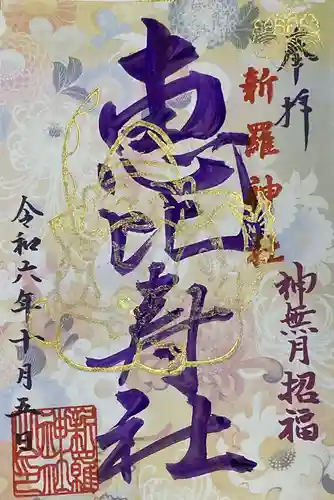 奉拝
新羅神社
神無月招福
恵比寿社
令和六年十月五日
新羅神社之印